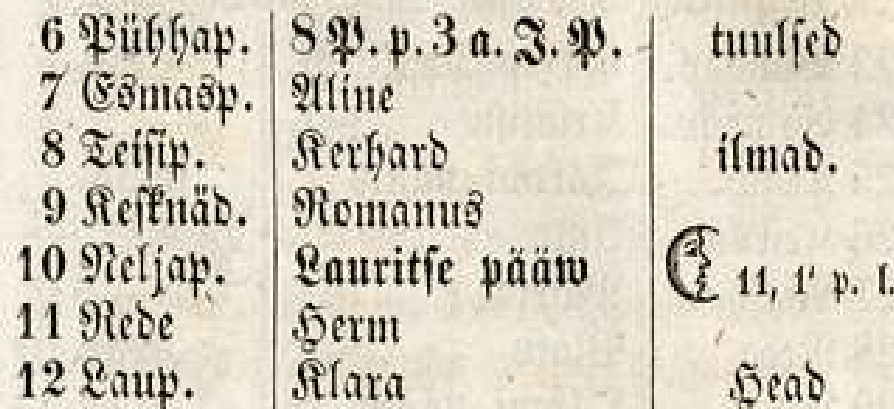 6 Pühhap. 8 P. p. 3 a. J. P. tuulsed
7 Esmasp. Aline
8 Teisip. Kerhard ilmad.
9 Keſknäd. Romanus
10 Neljap. Lauritſe pääw 11, 1' p. l.
11 Rede Herm
12 Laup. Klara Head